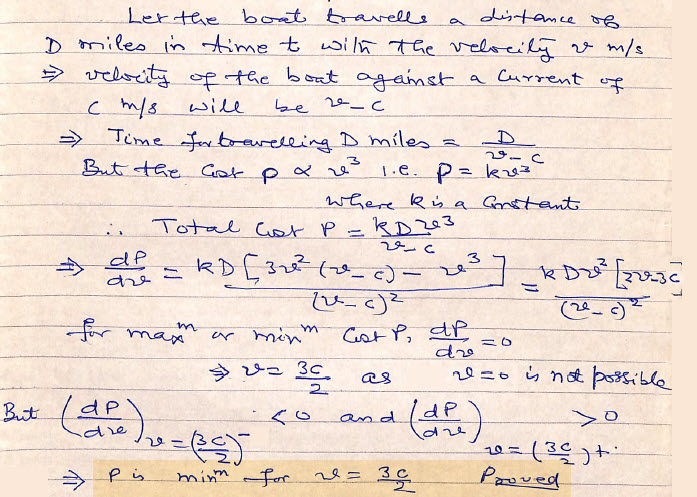 Let the boat travells a distance of
D miles in time t with the velocity v m/s
⇒ velocity of the boat against a current of
c m/s will be v-c
⇒ Time for travelling D miles = D/(v-c)
But the Cost p ∝ v³ i.e. p = kv³
where k is a Constant
∴ Total Cost P = kDv³/(v-c)
⇒ dP/dv = kD[3v²(v-c) - v³]/(v-c)² = kDv²[2v-3c]/(v-c)²
for maxᵐ or minᵐ Cost P, dP/dv = 0
⇒ v = 3c/2 as v=0 is not possible
But (dP/dv)v=(3c/2)⁻ <0 and (dP/dv)v=(3c/2)+ >0
⇒ P is minᵐ for v = 3c/2 Proved